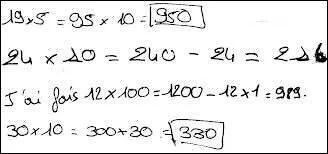 19 x 5 = 95 x 10 = 950
24 x 10 = 240 - 24 = 216
J'ai fais 12 x 100 = 1200 - 12 x 1 = 989.
30 x 10 = 300 + 30 = 330